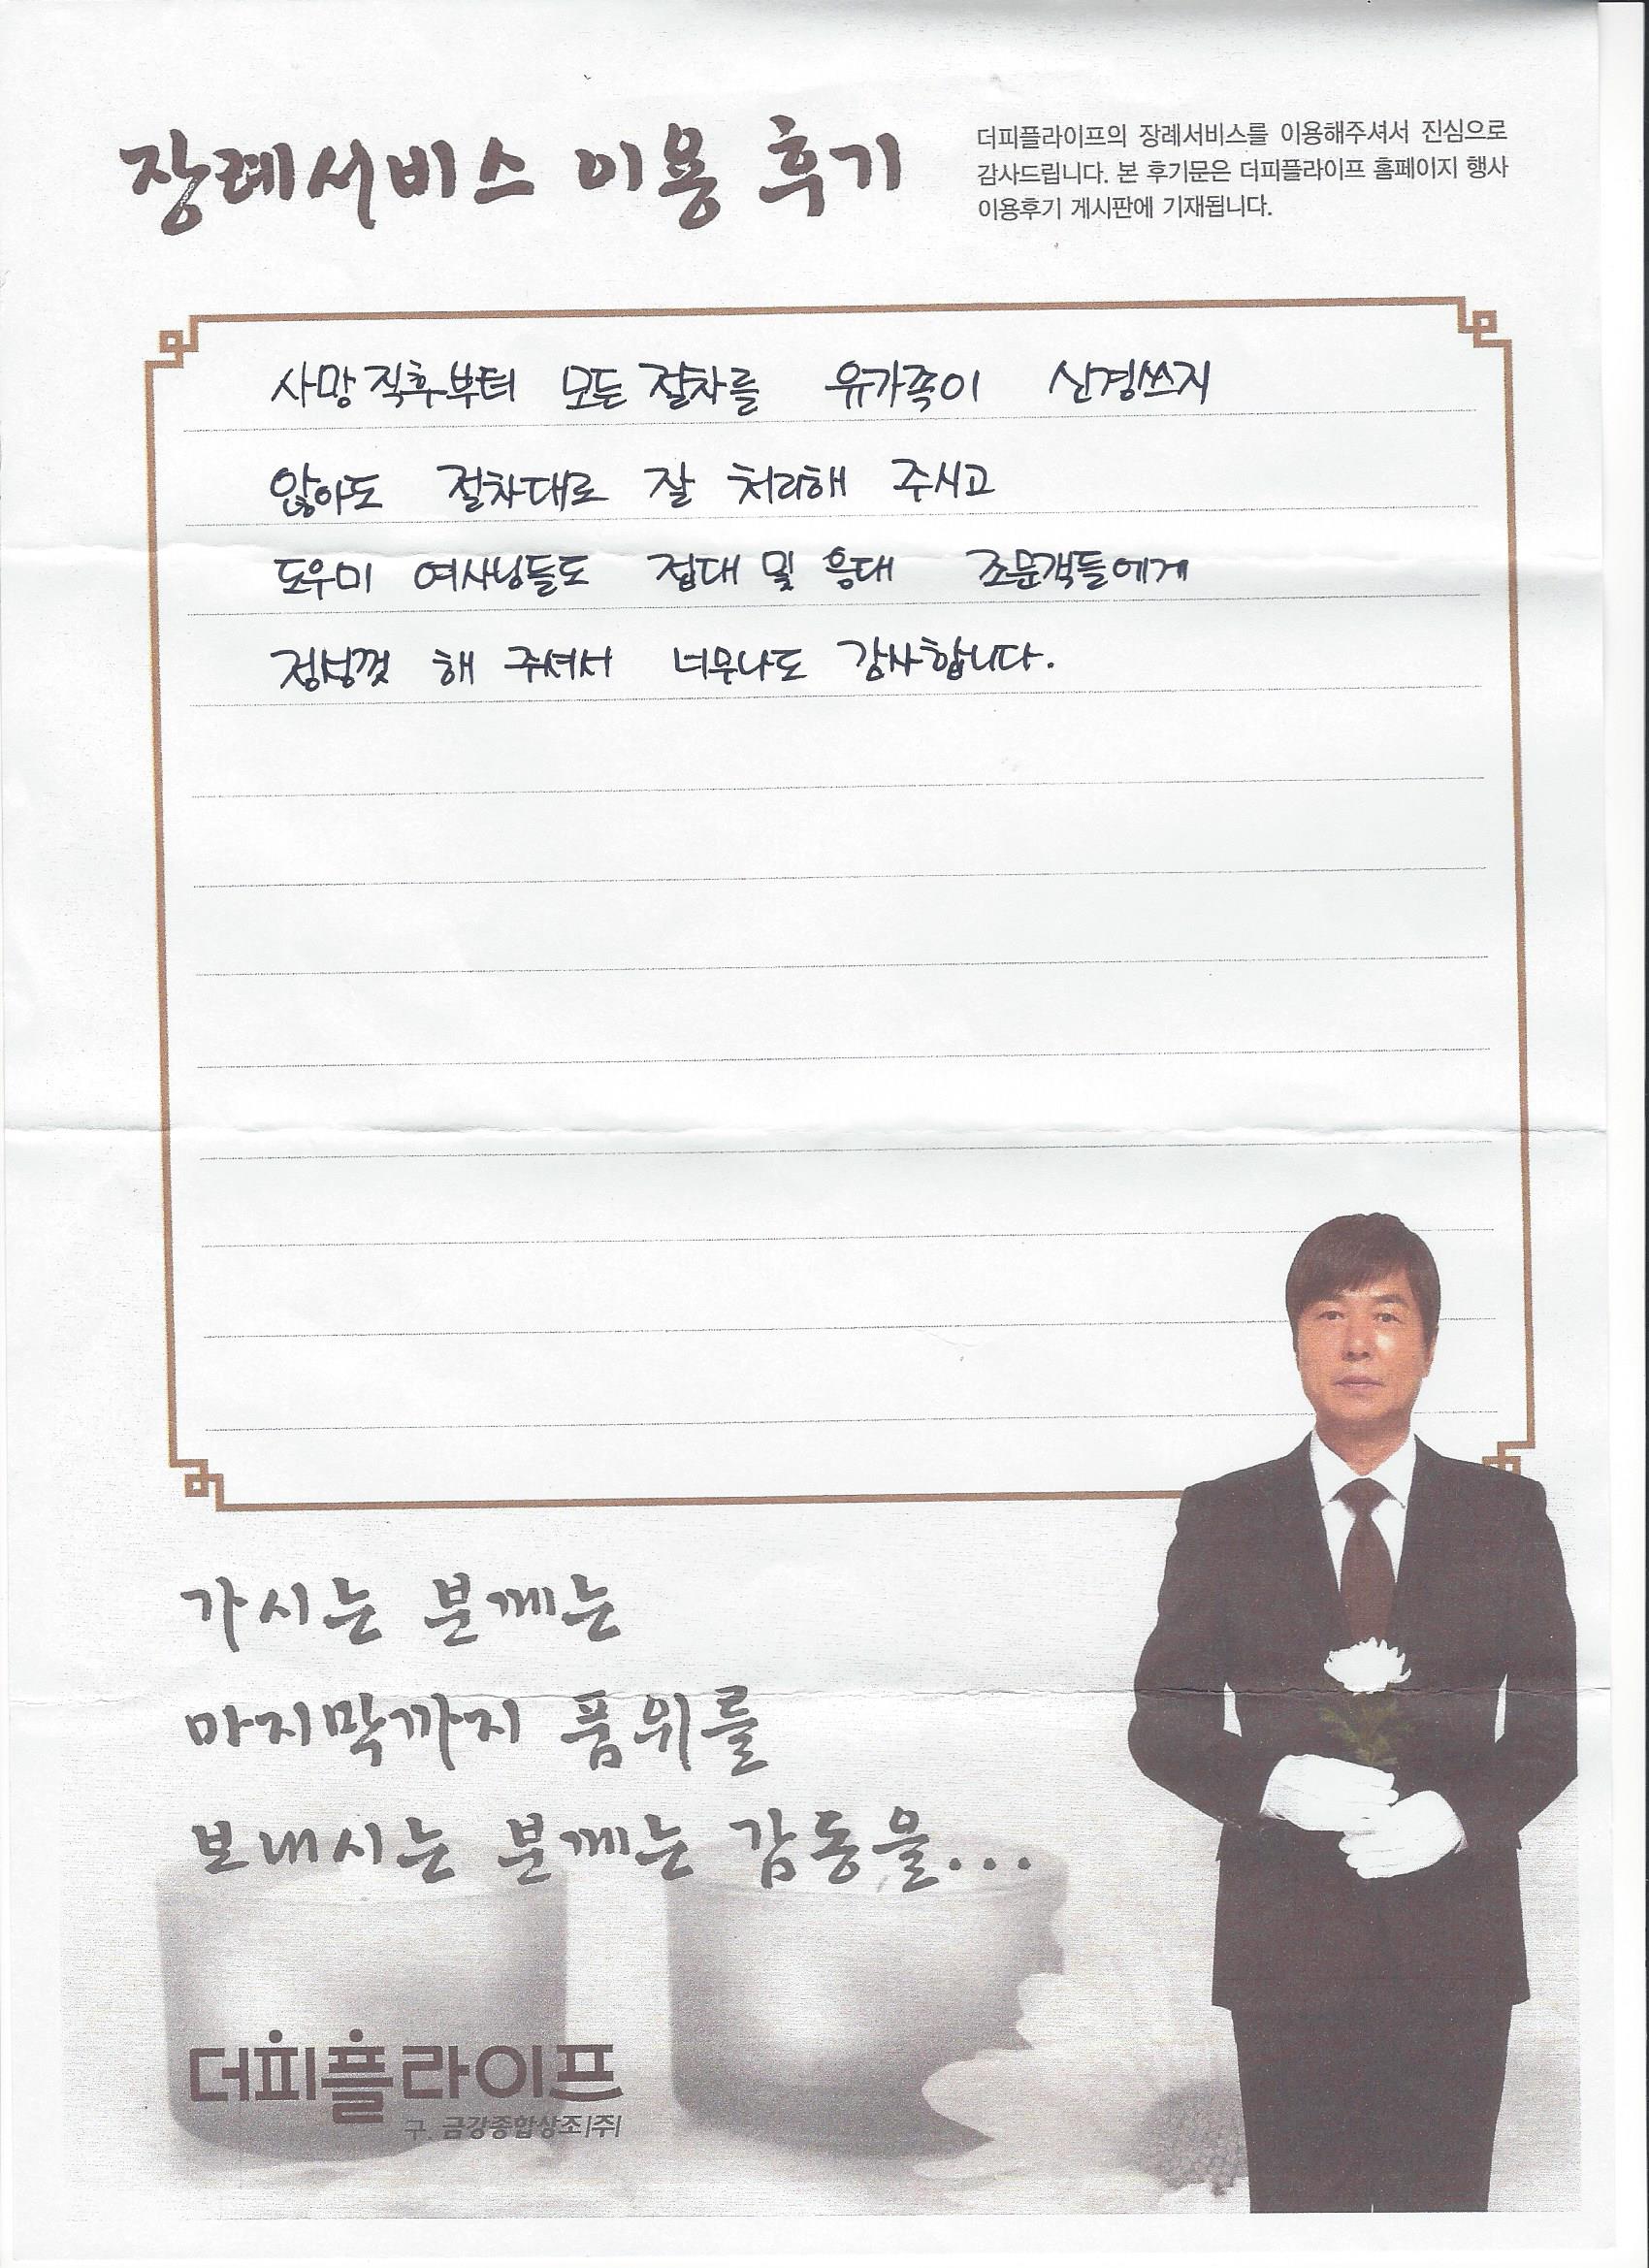 장례서비스 이용 후기
더피플라이프의 장례서비스를 이용해주셔서 진심으로
감사드립니다. 본 후기문은 더피플라이프 홈페이지 행사
이용후기 게시판에 기재됩니다.
사망 직후부터 모든 절차를 유가족이 신경쓰지
않아도 절차대로 잘 처리해 주시고
도우미 여사님들도 접대 및 응대 조문객들에게
정성껏 해 주셔서 너무나도 감사합니다.
가시는 분께는
마지막까지 품위를
보내시는 분께는 감동을...
더피플라이프
구. 금강종합상조|주|